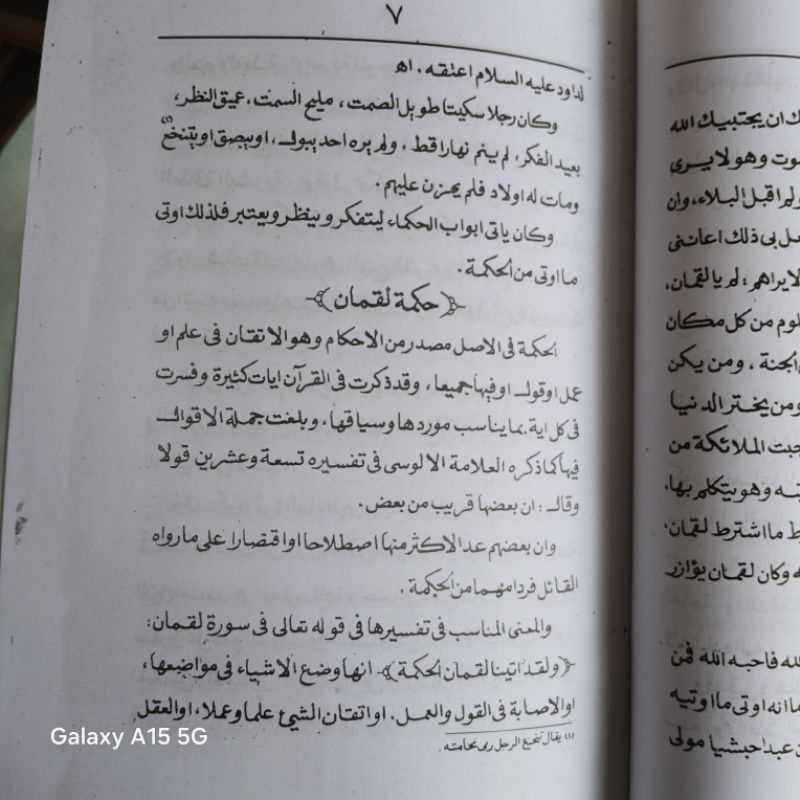 ٧
لداود عليه السلام اعتقه . اه
وكان رجلا سكيتا طويل الصمت ، مليح السمت ، عميق النظر ،
بعيد الفكر ، لم ينم نهارا قط ، ولم يره احد يبول ، او يبصق او يتنخع (١)
ومات له اولاد فلم يحزن عليهم .
وكان ياتى ابواب الحكماء ليتفكر وينظر ويعتبر فلذلك اوتى
ما اوتى من الحكمة .
﴿حكمة لقمان﴾
الحكمة فى الاصل مصدر من الاحكام وهو الاتقان فى علم او
عمل او قول او فيها جميعا ، وقد ذكرت فى القرآن ايات كثيرة وفسرت
فى كل اية بما يناسب موردها وسياقها ، وبلغت جملة الاقوال
فيها كما ذكره العلامة الالوسى فى تفسيره تسعة وعشرين قولا
وقال : ان بعضها قريب من بعض .
وان بعضهم عد الاكثر منها اصطلاحا او اقتصارا على ما رواه
القائل فردا مهما من الحكمة .
والمعنى المناسب فى تفسيرها فى قوله تعالى فى سورة لقمان :
﴿ولقد اتينا لقمان الحكمة﴾ انها وضع الاشياء فى مواضعها ،
او الاصابة فى القول والعمل . او اتقان الشيئ علما وعملا ، او العقل
(١) يقال تنخع الرجل رمى نخامته .
ك ان يجتبيك الله
موت وهو لا يرى
ولم اقبل البلاء ، وان
بى ذلك اعاننى
لا يراهم : لم يا لقمان ،
لوم من كل مكان
الجنة ، ومن يكن
ومن يختر الدنيا
جبت الملائكة من
وهو يتكلم بها ،
ط ما اشترط لقمان ،
وكان لقمان يؤازر
لله فاحبه الله فمن
ما انه اوتى ما اوتيه
ن عبدا حبشيا مولى
Galaxy A15 5G